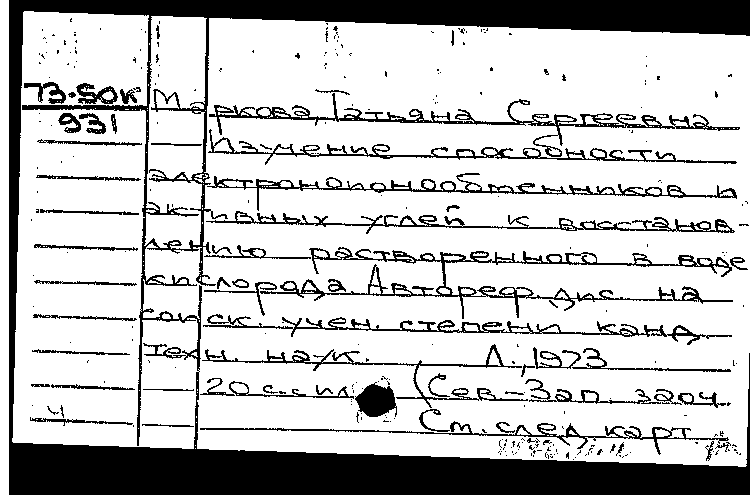 73-50к
931
Маркова, Татьяна Сергеевна
Изучение способности
электроноионообменников и
активных углей к восстанов-
лению растворенного в воде
кислорода. Автореф. дис. на
соиск. учен. степени канд.
техн. наук. Л., 1973
20 с. с ил. (Сев-Зап. заоч.
Ч См. след. карт.